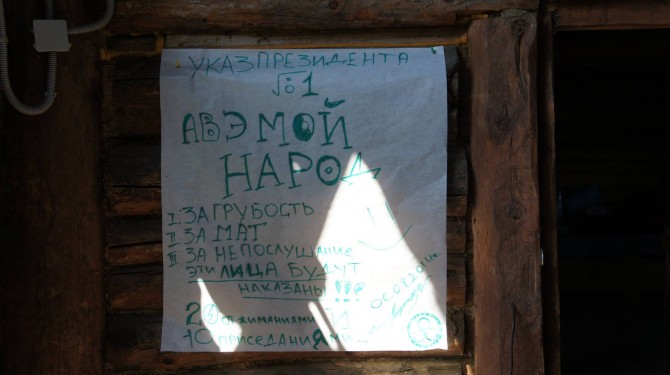 УКАЗ ПРЕЗИДЕНТА
№1
АВЭ МОЙ
НАРОД
I ЗА ГРУБОСТЬ
II ЗА МАТ
III ЗА НЕПОСЛУШАНИЕ
ЭТИ ЛИЦА БУДУТ
НАКАЗАНЫ!!!
20 отжиманиями И
10 приседаниями